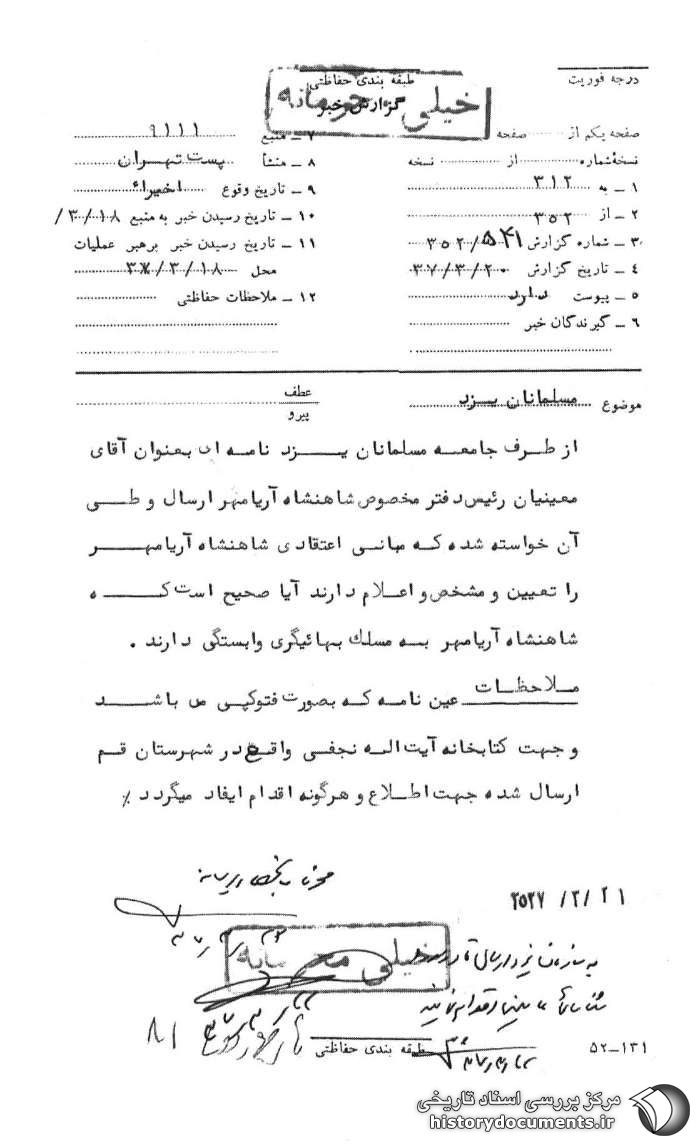 درجه فوریت
طبقه بندی حفاظتی
خیلی محرمانه
گزارش خبر
صفحه یکم از صفحه
نسخهٔ شماره از نسخه
۱ ـ به ۳۱۲
۲ ـ از ۳۵۲
۳ ـ شماره گزارش ۳۵۲/۵۴۱
۴ ـ تاریخ گزارش ۳۷/۳/۲۰
۵ ـ پیوست دارد
۶ ـ گیرندگان خبر
۷ ـ منبع ۹۱۱۱
۸ ـ منشأ پست تهران
۹ ـ تاریخ وقوع اخیراً
۱۰ ـ تاریخ رسیدن خبر به منبع ۳/۱۸/
۱۱ ـ تاریخ رسیدن خبر برهبر عملیات
محل ۳۷/۳/۱۸
۱۲ ـ ملاحظات حفاظتی
موضوع مسلمانان یزد
عطف
پیرو
از طرف جامعه مسلمانان یزد نامه ای بعنوان آقای
معینیان رئیس دفتر مخصوص شاهنشاه آریامهر ارسال و طی
آن خواسته شده که مبانی اعتقادی شاهنشاه آریامهر
را تعیین و مشخص و اعلام دارند آیا صحیح است که
شاهنشاه آریامهر به مسلك بهائیگری وابستگی دارند .
ملاحظات
عین نامه که بصورت فتوکپی می باشد
و جهت کتابخانه آیت اله نجفی واقع در شهرستان قم
ارسال شده جهت اطلاع و هرگونه اقدام ایفاد میگردد ٪
۲۵۳۷ /۳/۲۱
خیلی محرمانه
طبقه بندی حفاظتی
۵۲-۱۳۱
مرکز بررسی اسناد تاریخی
historydocuments.ir